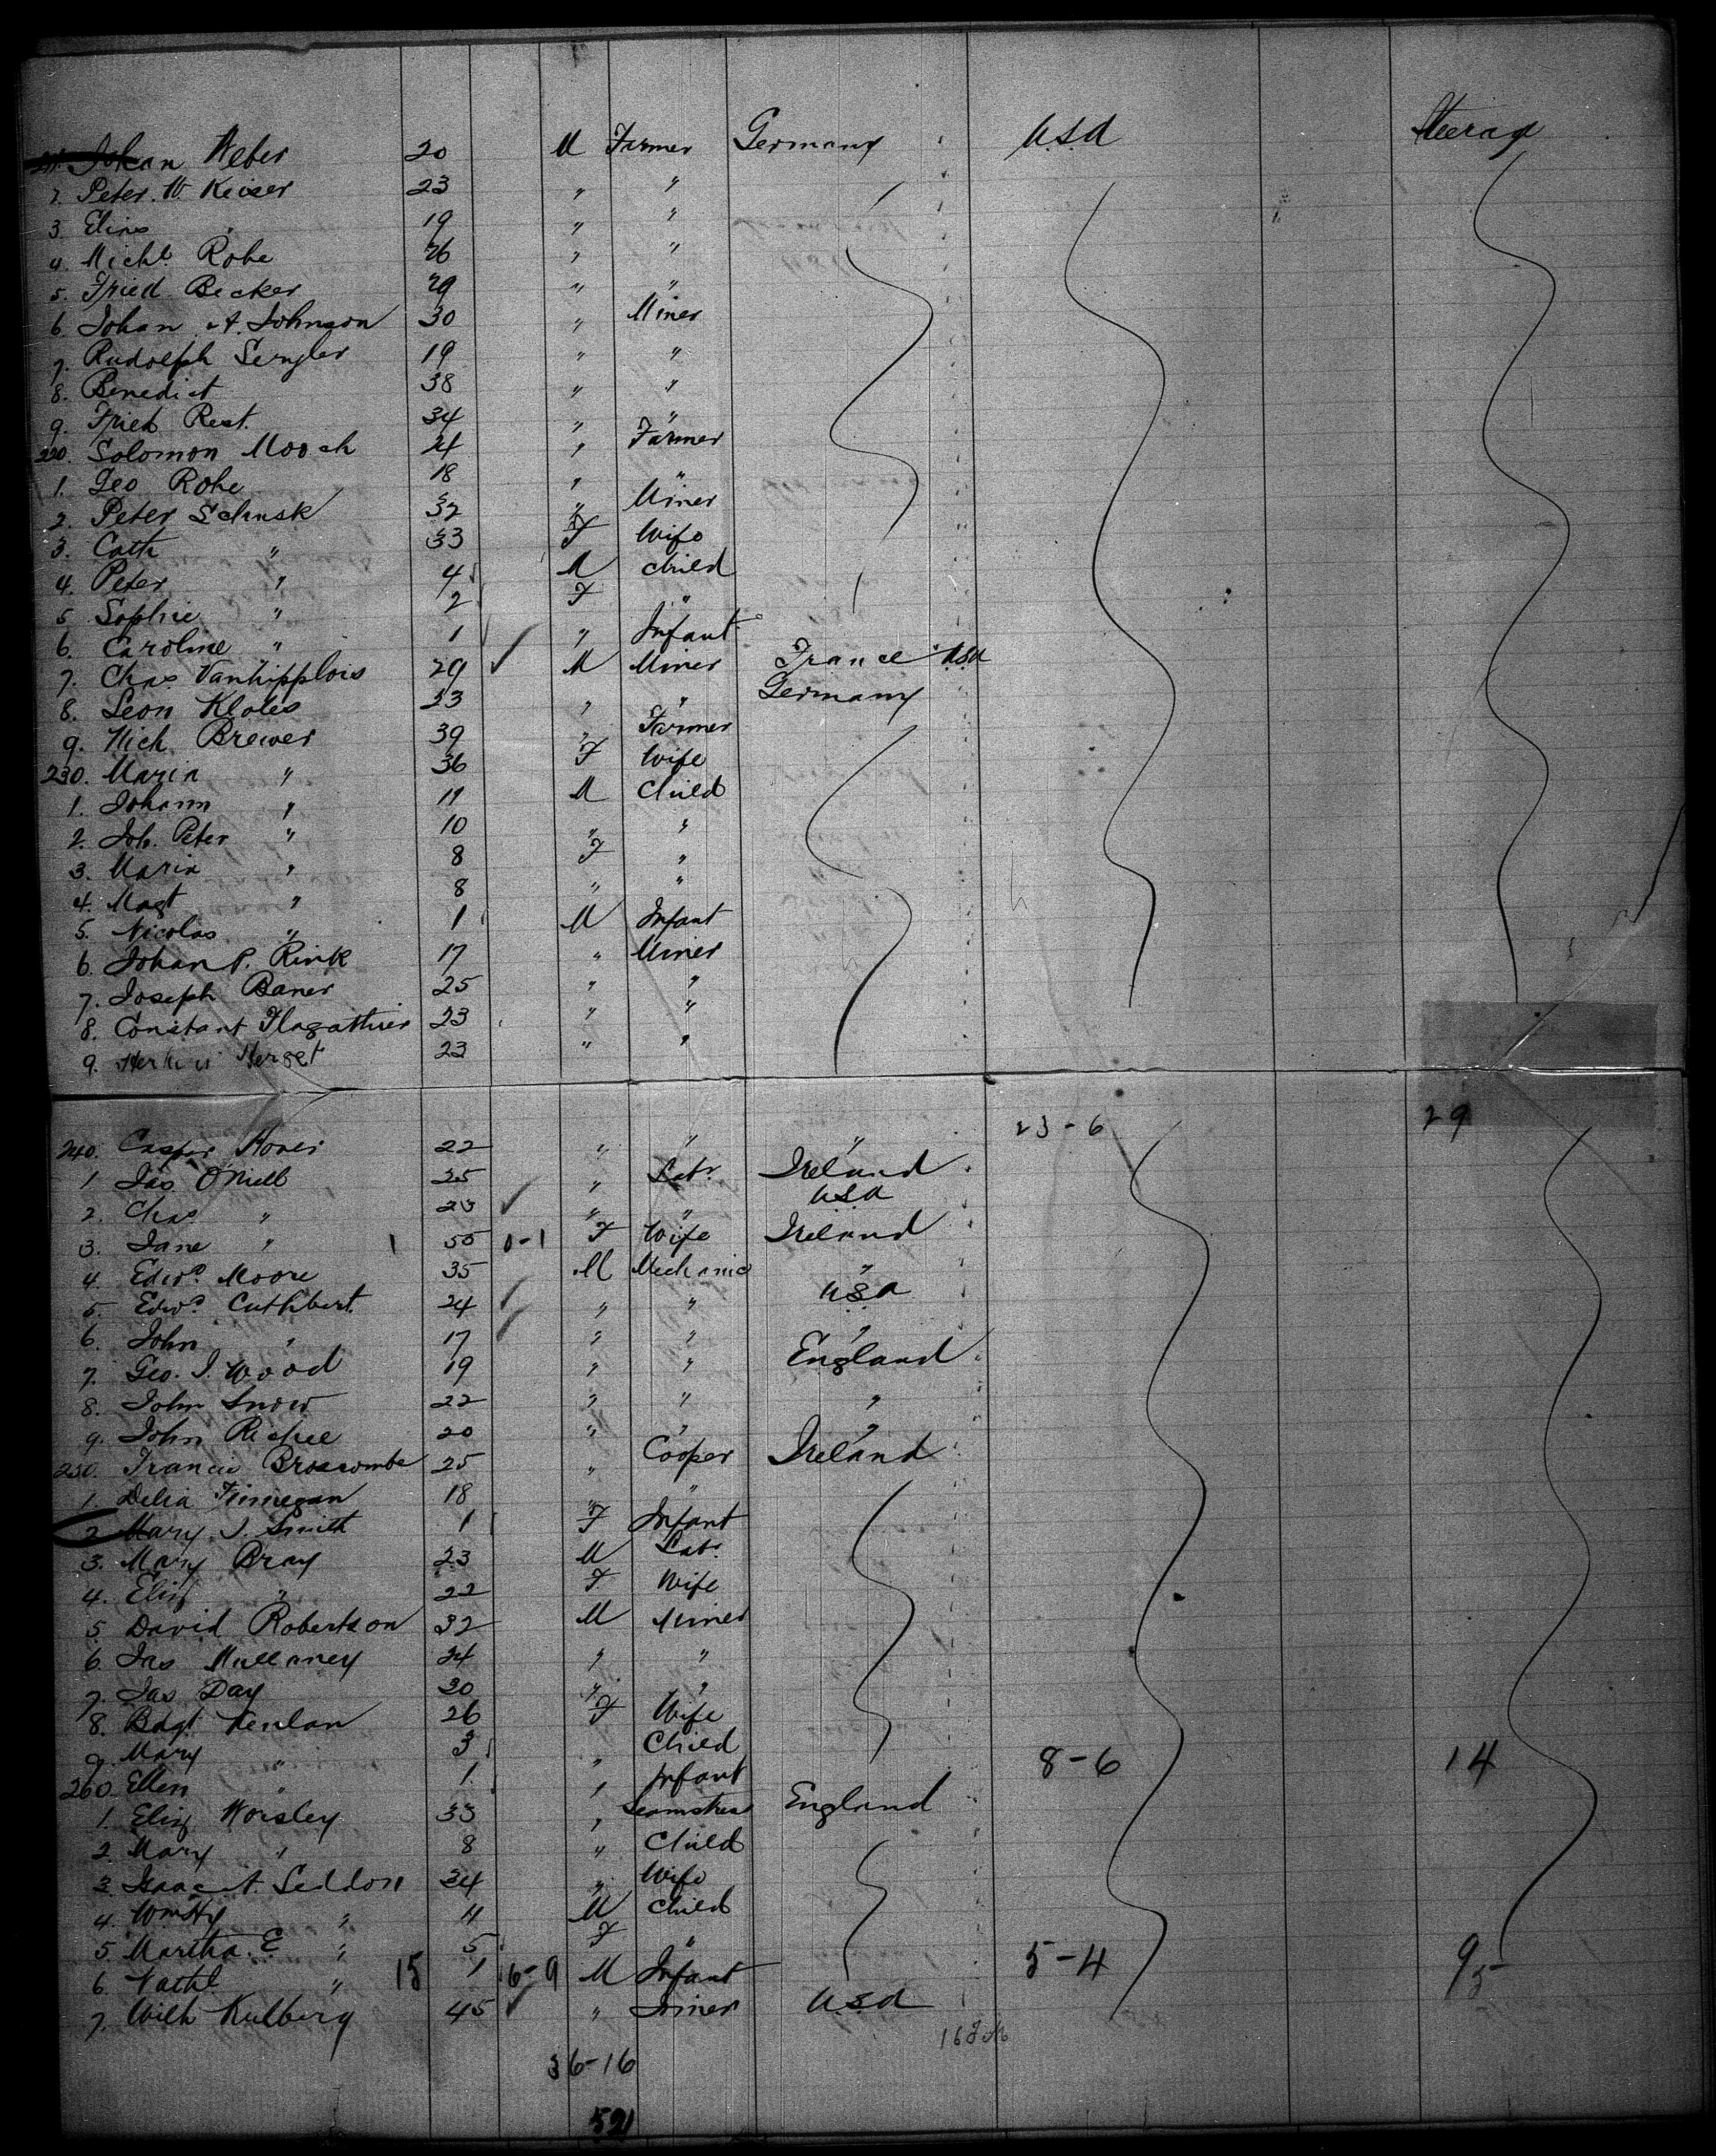 211. Johan Weber 20 M Farmer Germany U.S.A Steerage
2. Peter W. Keiser 23 " "
3. Elias " 19 " "
4. Michl Robe 26 " "
5. Fried Becker 29 " "
6. Johan A. Johnson 30 " Miner
7. Rudolph Sengler 19 " "
8. Benedict 38 " "
9. Fried Rest. 34 " "
220. Solomon Mooch 24 " Farmer
1. Geo Robe 18 " "
2. Peter Schusk 32 " Miner
3. Cath " 33 F Wife
4. Peter " 4 M Child
5 Sophie " 2 F "
6. Caroline " 1 " Infant
7. Chas Vanhipplois 29 ✓ M Miner France USA
8. Leon Klotes 23 " " Germany
9. Nich Brewer 39 " Farmer
230. Maria " 36 F Wife
1. Johann " 11 M Child
2. Joh. Peter " 10 " "
3. Maria " 8 F "
4. Magt " 8 " "
5. Nicolas " 1 M Infant
6. Johan P. Rink 17 " Miner
7. Joseph Baner 25 " "
8. Constant 23 " "
9. Herget 23 " "
23-6 29
240. Casper Hover 22 " " "
1 Jas O'Niell 25 " Labr Ireland
2. Chas " 23 ✓ " " USA
3. Jane " 1 55 0-1 F Wife Ireland
4. Edwd Moore 35 M Mechanic "
5. Edwd Cuthbert 24 ✓ " " USA
6. John " 17 ✓ " " "
7. Geo. J. Wood 19 " " England
8. John Snow 22 " " "
9. John Richee 20 " " "
250. Francis Broscombe 25 " Cooper Ireland
1. Delia Finnegan 18 " "
2 Mary J. Smith 1 F Infant
3. Mary Bray 23 M Labr
4. Eliz " 22 F Wife
5 David Robertson 32 M Miner
6. Jas Mullaney 24 " "
7. Jas Day 30 " "
8. Bdgt Kenlan 26 F Wife
9. Mary " 3 " Child 8-6 14
260. Ellen " 1 " Infant
1. Eliz Worsley 33 " Seamstress England
2 Mary " 8 " Child
3. Seddon 34 " Wife
4. Wm Hy " 11 M Child
5 Martha E " 5 F " 5-4 9
6. Nathl " 15 1 16-9 M Infant 95
7. Wilh Kulberg 45 ✓ " Miner USA
36-16
591